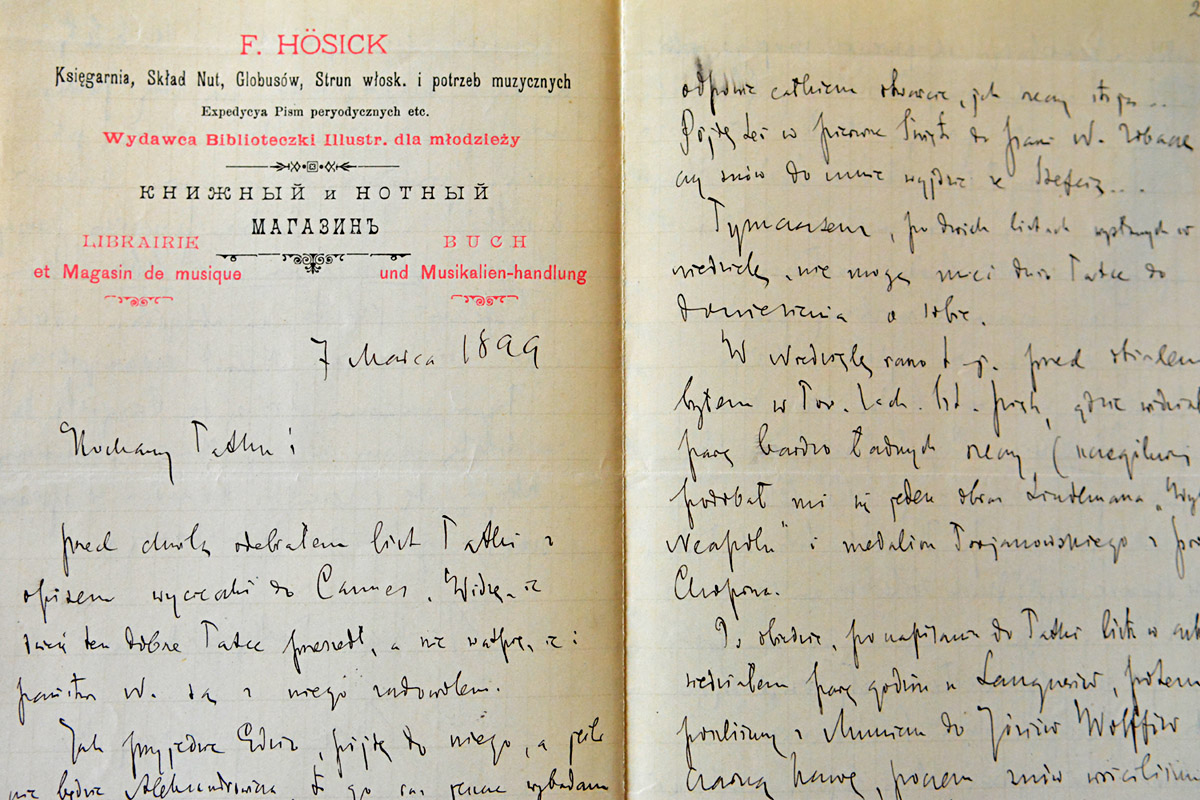 F. HÖSICK
Księgarnia, Skład Nut, Globusów, Strun włosk. i potrzeb muzycznych
Expedycya Pism peryodycznych etc.
Wydawca Biblioteczki Illustr. dla młodzieży
КНИЖНЫЙ и НОТНЫЙ
МАГАЗИНЪ
LIBRAIRIE
et Magasin de musique
BUCH
und Musikalien-handlung
7 Marca 1899
Kochany Tatku!
przed chwilą odebrałem list Tatki z
opisem wycieczki do Cannes. Widzę, iż
dzień ten dobrze Tatce przeszedł, a nie wątpię, iż i
W. są z niego zadowoleni.
Jak przyjedzie Edzio, pójdę do niego, a jeśli
nie będzie Aleksandrowicza, to go zaraz wybadam
2
odpowie całkiem otwarcie, jak rzeczy stoją...
Pójdę też w pierwsze Święto do pani W. Zobaczę
czy znów do mnie wyjdzie ze Stefcią...
Tymczasem, po dwóch listach wysłanych w
niedzielę, nie mogę mieć dziś Tatce do
doniesienia o sobie.
W niedzielę rano t.j. przed obiadem
byłem w Tow. Zach. Szt. pięk., gdzie widział
parę bardzo ładnych rzeczy (szczególniej
podobał mi się jeden obraz
Neapolu" i medalion Trojanowskiego z
Chopina.
Po obiedzie, po napisaniu do Tatki listu w
siedziałem parę godzin u Langnerów, potem
poszliśmy z Muniem do Józiów Wolffów
czarną kawę, poczem znów wróciliśmy